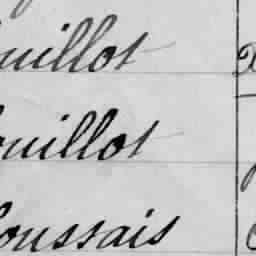 uillot
ouillot
oussais